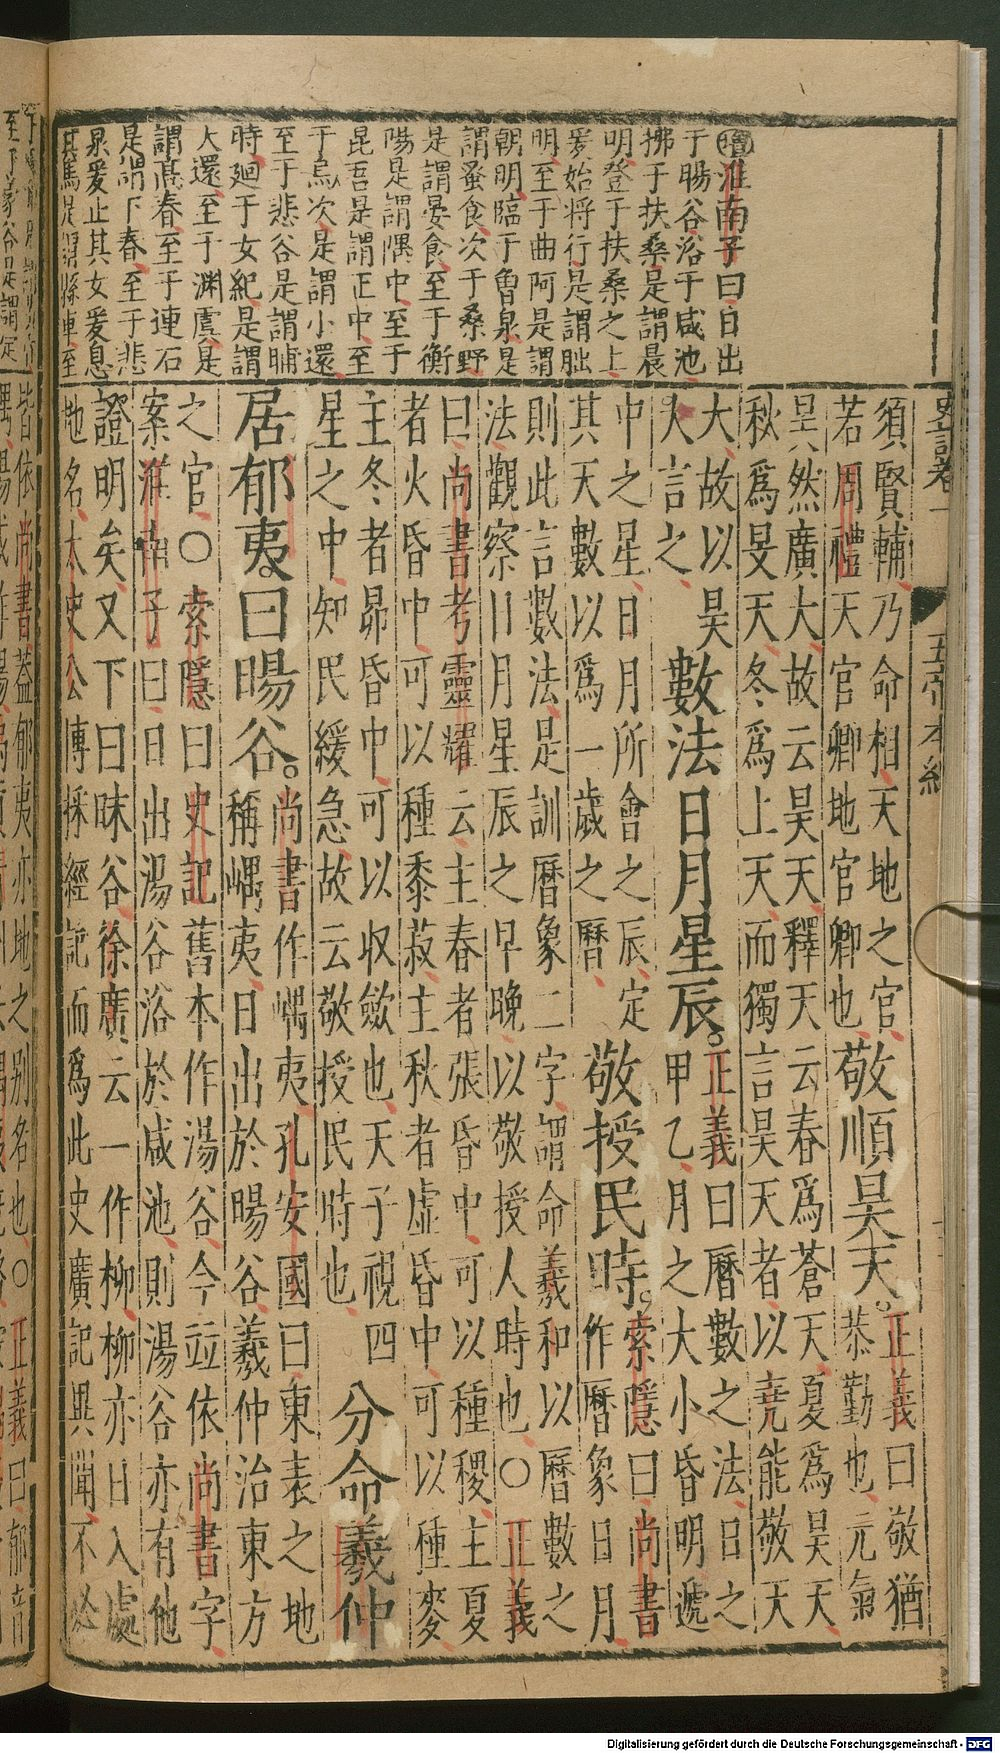 增淮南子曰日出
于暘谷浴于咸池
拂于扶桑是謂晨
明登于扶桑之上
爰始將行是謂朏
明至于曲阿是謂
朝明臨于魯泉是
謂蚤食次于桑野
是謂晏食至于衡
陽是謂隅中至于
昆吾是謂正中至
于鳥次是謂小還
至于悲谷是謂晡
時廻于女紀是謂
大還至于淵虞是
謂高舂至于連石
是謂下舂至于悲
泉爰止其女爰息
其馬是謂縣車至
史記卷一 五帝本紀
須賢輔乃命相天地之官
若周禮天官卿地官卿也
敬順昊天。
正義曰敬猶
恭勤也元氣
昊然廣大故云昊天釋天云春爲蒼天夏爲昊天
秋爲旻天冬爲上天而獨言昊天者以堯能敬天
大故以昊
大言之
數法日月星辰。
正義曰曆數之法日之
甲乙月之大小昏明遞
中之星日月所會之辰定
其天數以爲一歲之曆
敬授民時。
索隱曰尚書
作曆象日月
則此言數法是訓曆象二字謂命羲和以曆數之
法觀察日月星辰之早晚以敬授人時也○正義
曰尚書考靈耀云主春者張昏中可以種稷主夏
者火昏中可以種黍菽主秋者虛昏中可以種麥
主冬者昴昏中可以收斂也天子視四
星之中知民緩急故云敬授民時也
分命羲仲
居郁夷。曰暘谷。
尚書作嵎夷孔安國曰東表之地
稱嵎夷日出於暘谷羲仲治東方
之官○索隱曰史記舊本作湯谷今竝依尚書字
案淮南子曰日出湯谷浴於咸池則湯谷亦有他
證明矣又下曰昧谷徐廣云一作柳柳亦日入處
地名太史公博採經記而爲此史廣記異聞不必
皆依尚書蓋郁夷亦地之别名也○正義曰郁音
Digitalisierung gefördert durch die Deutsche Forschungsgemeinschaft - DFG